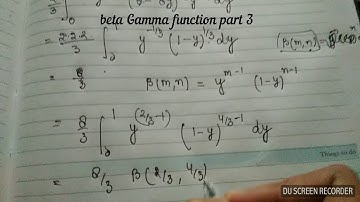 beta Gamma function part 3
= 2·2·2/3 ∫₀¹ y^(-1/3) (1-y)^(1/3) dy
= 8/3 β(m,n) = y^(m-1) (1-y)^(n-1)
= 8/3 ∫₀¹ y^(2/3-1) (1-y)^(4/3-1) dy
= 8/3 β(2/3, 4/3)
DU SCREEN RECORDER